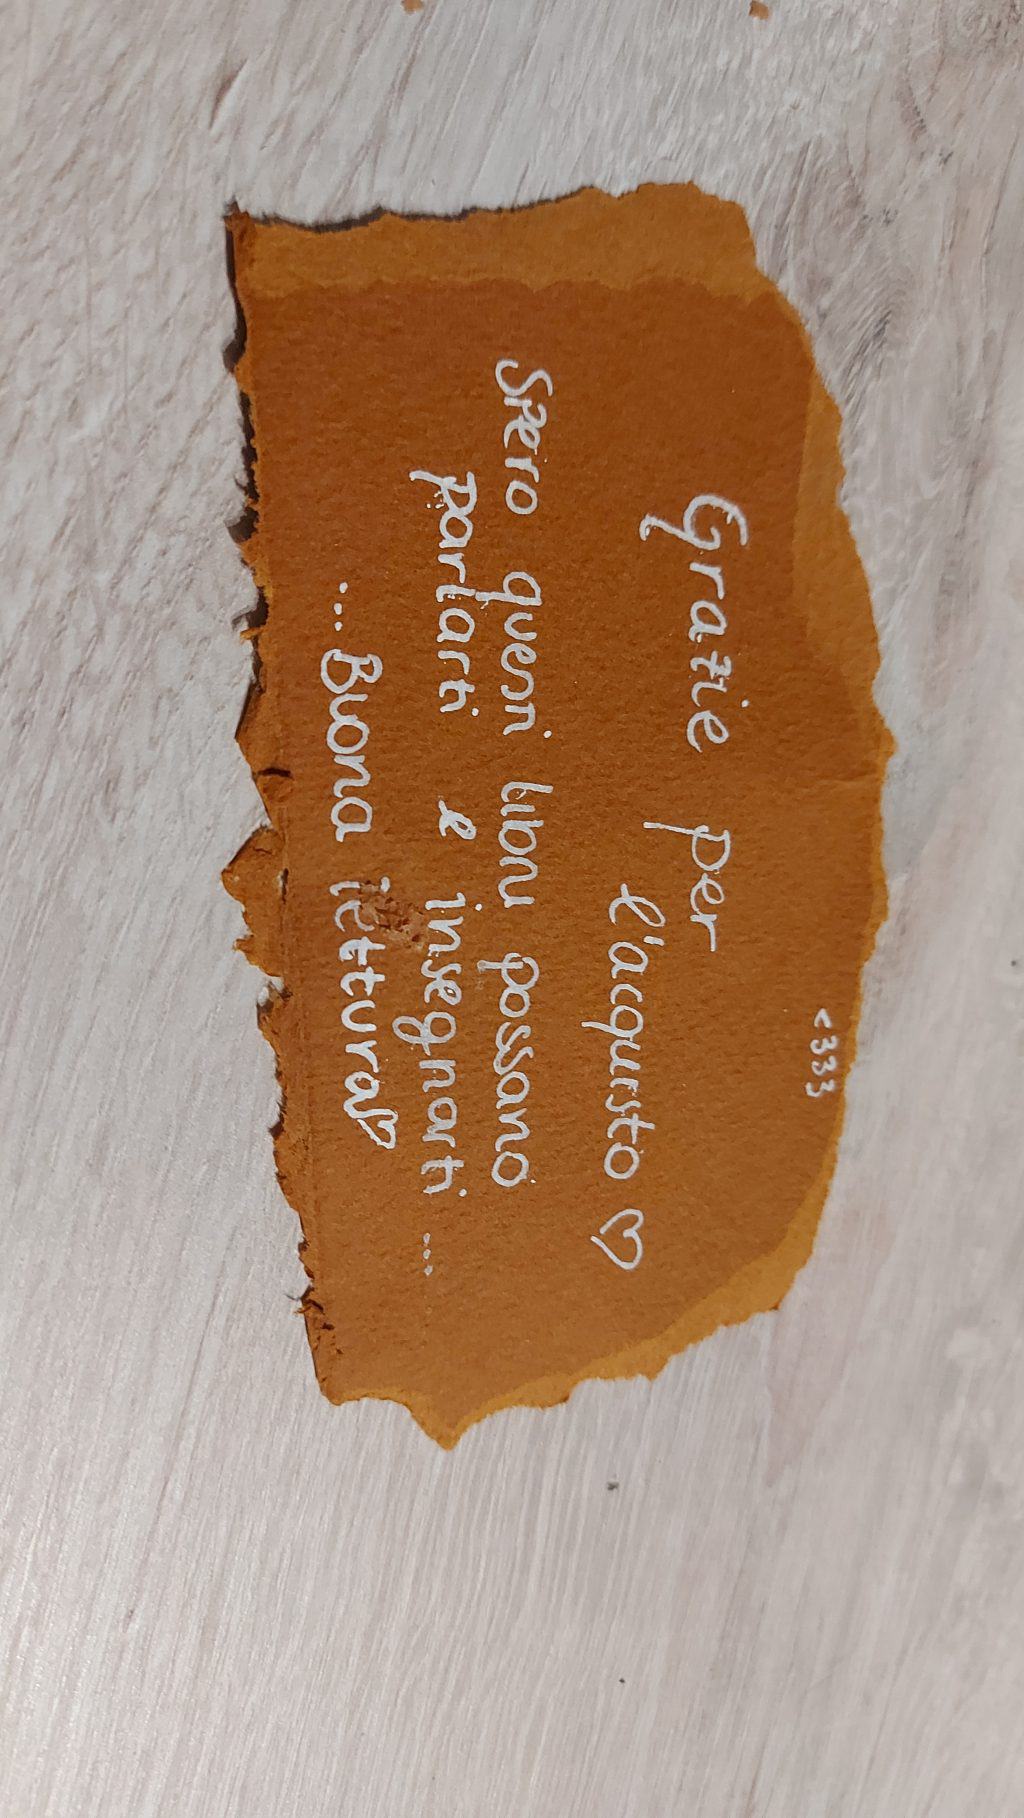 <333
Grazie per
l'acquisto ♡
Spero questi libri possano
parlarti e insegnarti ...
... Buona lettura♡